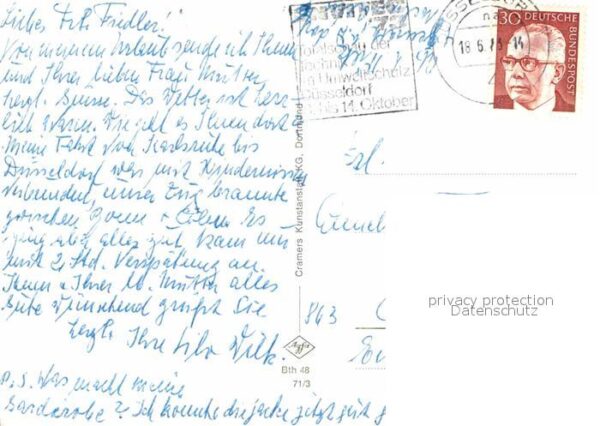 Liebes Frl. Friedler!
Von meinem Urlaub sende ich Ihnen
und Ihrer lieben Frau Mutter
herzl. Grüsse. Das Wetter ist herr-
lich warm. Wie geht es Ihnen dort
Meine Fahrt von Karlsruhe bis
Düsseldorf war mit Hindernissen
verbunden, unser Zug brannte
zwischen Bonn + Cöln. Es
ging aber alles gut, kam nur
mit 2 Std. Verspätung an.
Ihnen u. Ihrer lb. Mutter alles
Gute wünschend grüßt Sie
herzl. Ihre Wilk.
P.S. Was macht meine
Garderobe? Ich könnte die Jacke jetzt gut
der
Technik
Umweltschutz
Düsseldorf
bis 14. Oktober
18.6.73-14
30 DEUTSCHE
BUNDESPOST
Frl.
863
Cramers Kunstanstalt KG, Dortmund
Agfa
Bth 48
71/3
privacy protection
Datenschutz